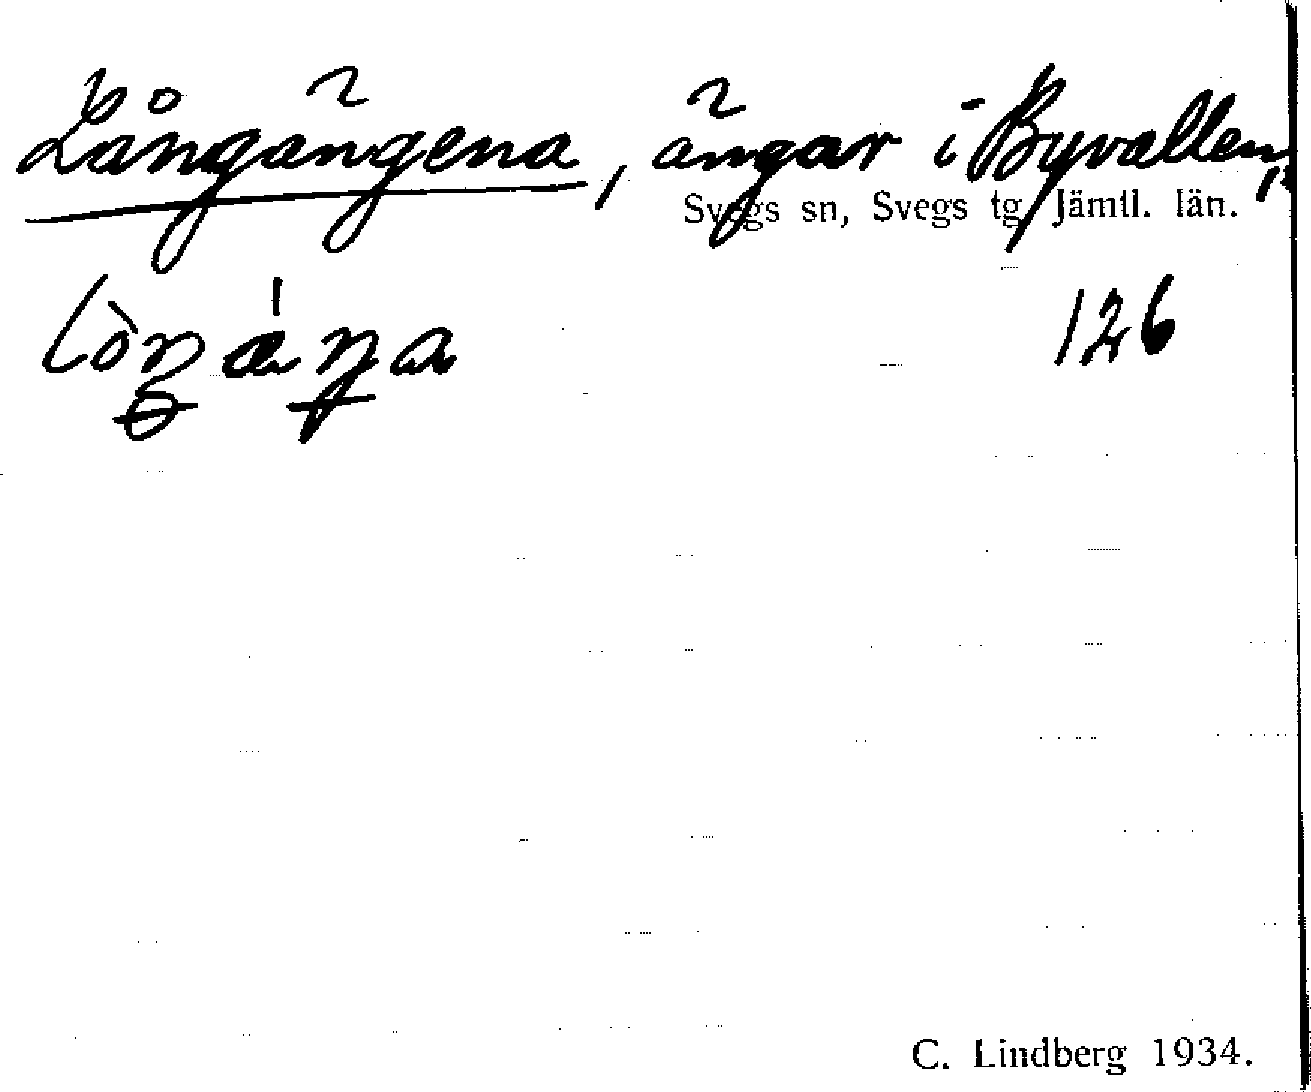 Långängena, ängar i Byvallen,
Svegs sn, Svegs tg, Jämtl. län.
126
C. Lindberg 1934.